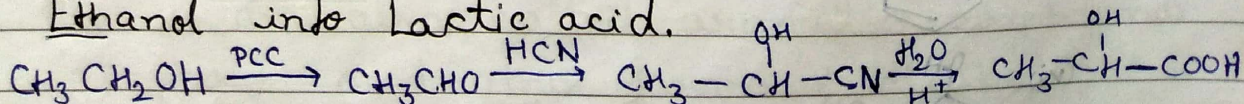 Ethanol into Lactic acid.
CH₃CH₂OH —PCC→ CH₃CHO —HCN→ CH₃–CH(OH)–CN —H₂O/H⁺→ CH₃–CH(OH)–COOH